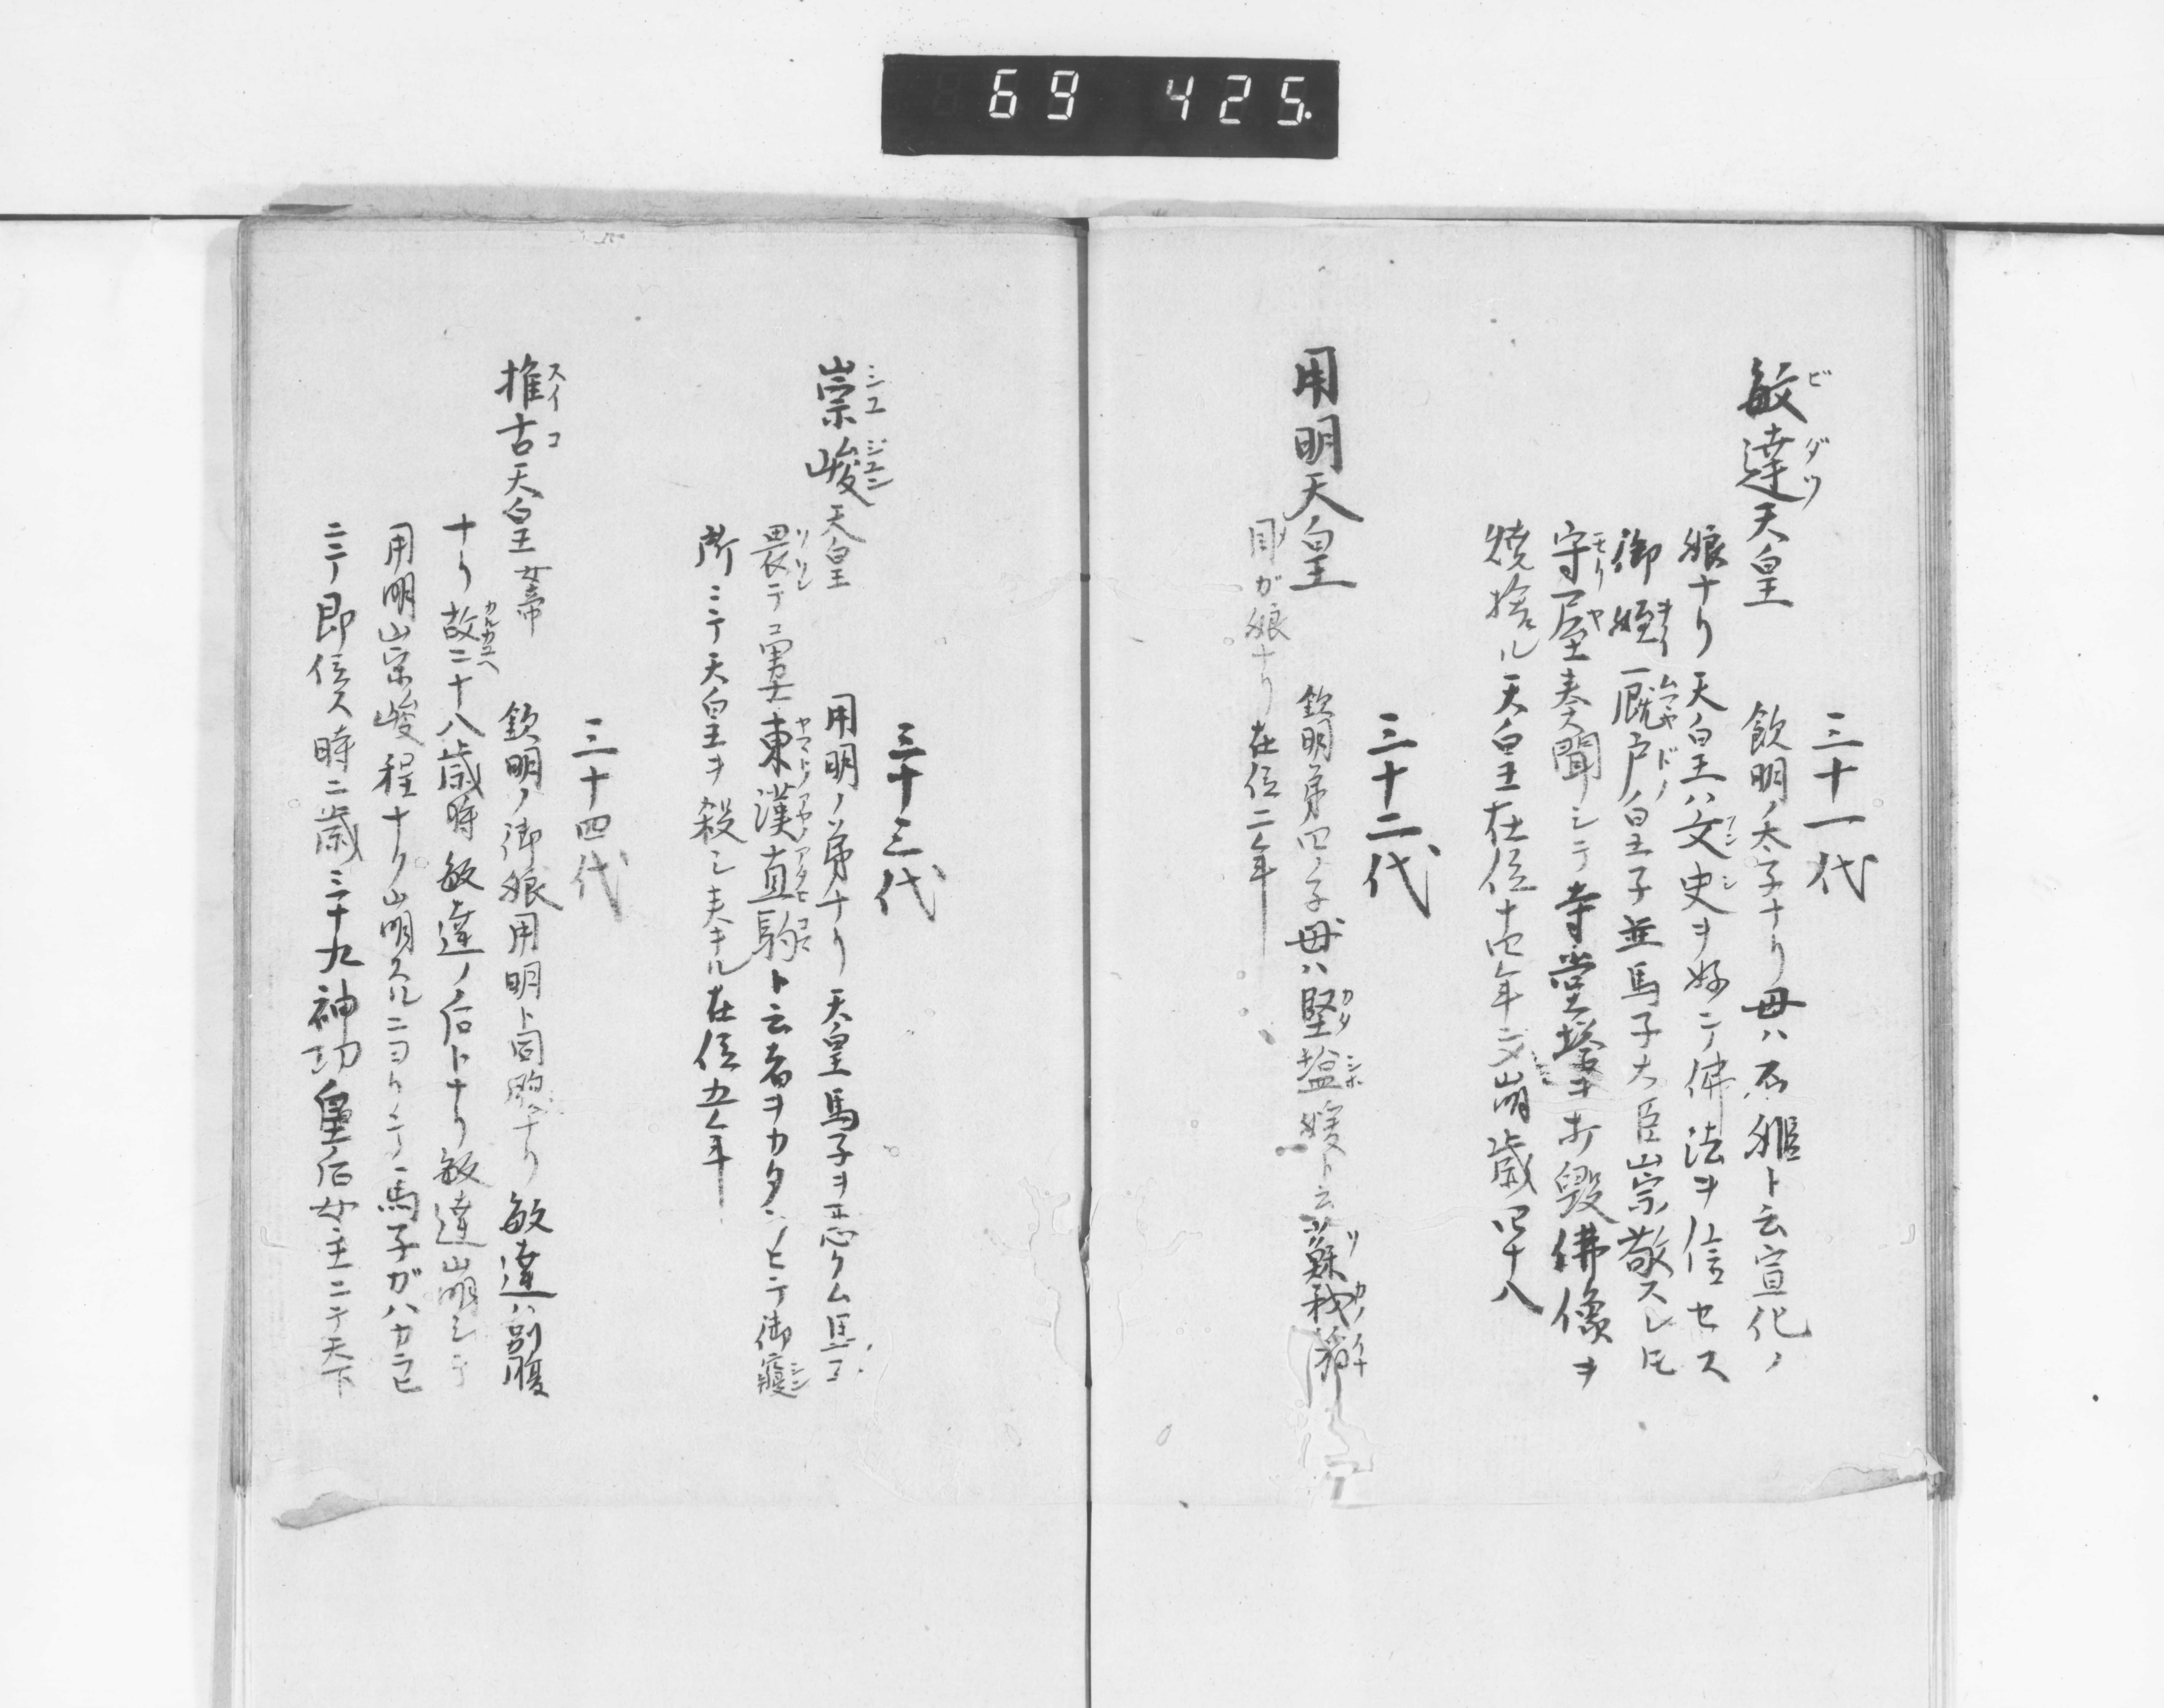 69 425.
三十一代
敏達天皇 欽明ノ太子ナリ母ハ石姫ト云宣化ノ
娘ナリ天皇ハ文史ヲ好ニテ佛法ヲ信セス
御姪厩戸ノ皇子並馬子大臣崇敬スレ𪜈
守屋奏聞シテ寺堂塔ヲ打毀佛像ヲ
焼捨ル天皇在位十四年ニ〆崩歳四十八
三十二代
用明天皇 欽明第四ノ子母ハ堅塩媛ト云蘇我ノ稲
目ガ娘ナリ在位二年
三十三代
崇峻天皇 用明ノ弟ナリ天皇馬子ヲ悪クム馬子
畏テ勇士東漢直駒ト云者ヲカタラヒテ御寝
所ニテ天皇ヲ殺シ奉ル在位五年
三十四代
推古天皇 女帝 欽明ノ御娘用明ト同腹ナリ敏達ハ別腹
ナリ故二十八歳時敏達ノ后トナリ敏達崩シテ
用明崇峻程ナク崩スルニヨリテ馬子ガハカラヒ
ニテ即位ス時ニ歳三十九神功皇后女主ニテ天下